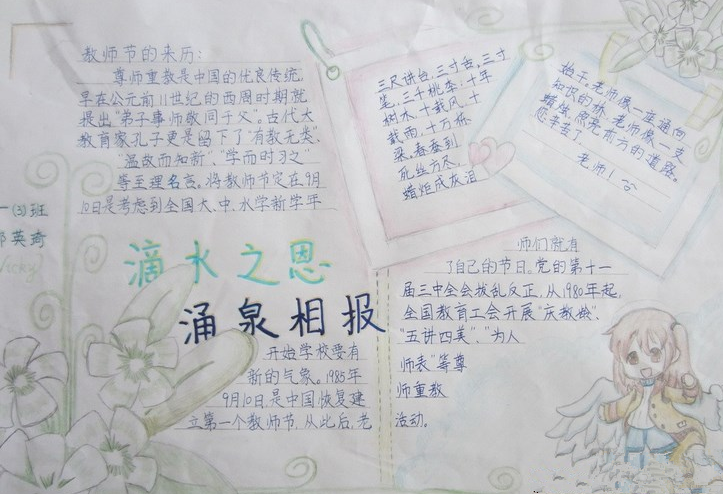 教师节的来历:
尊师重教是中国的优良传统,
早在公元前11世纪的西周时期就
提出"弟子事师敬同于父"。古代大
教育家孔子更是留下了"有教无类"、
"温故而知新"、"学而时习之"
等至理名言。将教师节定在9月
10日是考虑到全国大、中、小学新学年
三尺讲台,三寸舌,三寸
笔,三千桃李;十年
树木,十载风,十
载雨,十万栋
梁。春蚕到
死丝方尽,
蜡炬成灰泪
老师像一座通向
知识的桥,老师像一支
蜡烛,照亮前方的道路。
您辛苦了,
老师!
一(3)班
英琦
Vicky
滴水之恩
涌泉相报
开始学校要有
新的气象。1985年
9月10日,是中国恢复建
立第一个教师节,从此后,老
师们就有
了自己的节日。党的第十一
届三中全会拨乱反正,从1980年起,
全国教育工会开展"庆教
"五讲四美"、"为人
师表"等尊
师重教
活动。